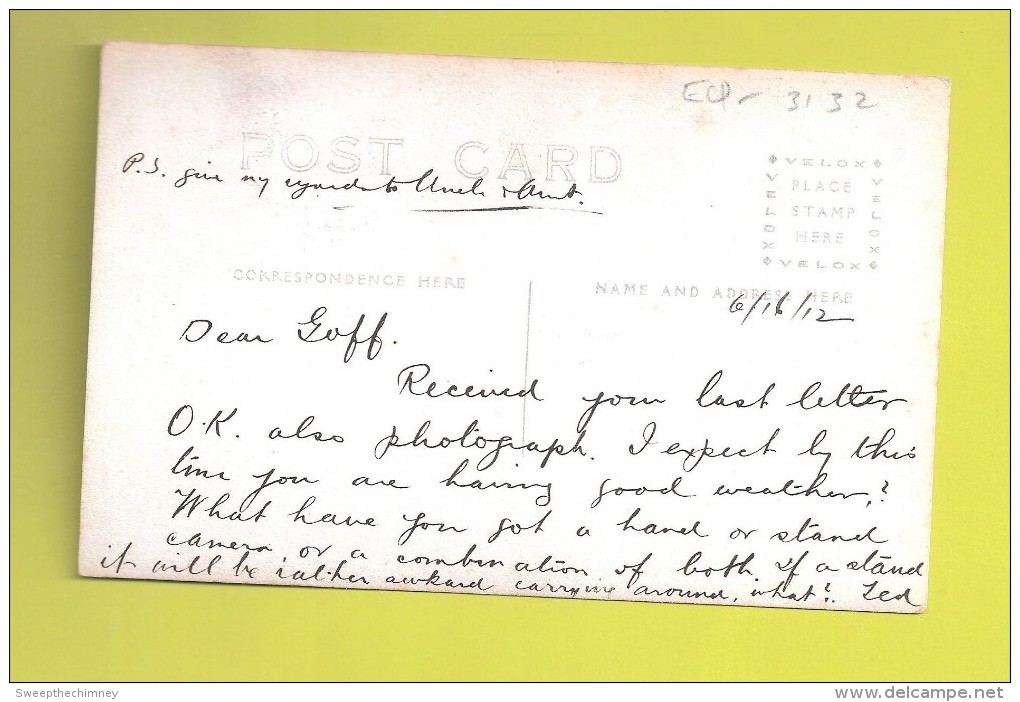 ECP - 3132
POST CARD
P.S. give my regards to Uncle & Aunt.
VELOX
VELOX
VELOX
PLACE
STAMP
HERE
VELOX
CORRESPONDENCE HERE
NAME AND ADDRESS HERE
6/16/12
Dear Goff.
Received your last letter
O.K. also photograph. I expect by this
time you are having good weather?
What have you got a hand or stand
camera, or a combination of both. If a stand
it will be rather awkard carrying around, what? Ted
Sweepthechimney
www.delcampe.net